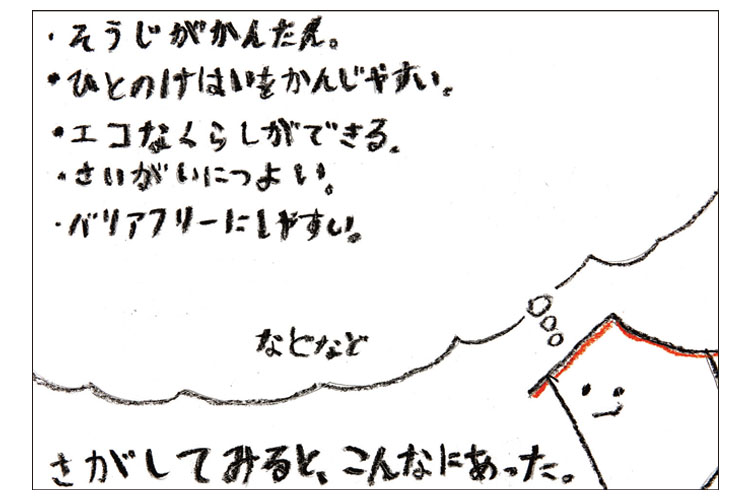 ・そうじがかんたん。
・ひとのけはいをかんじやすい。
・エコなくらしができる。
・さいがいにつよい。
・バリアフリーにしやすい。
などなど
さがしてみると、こんなにあった。